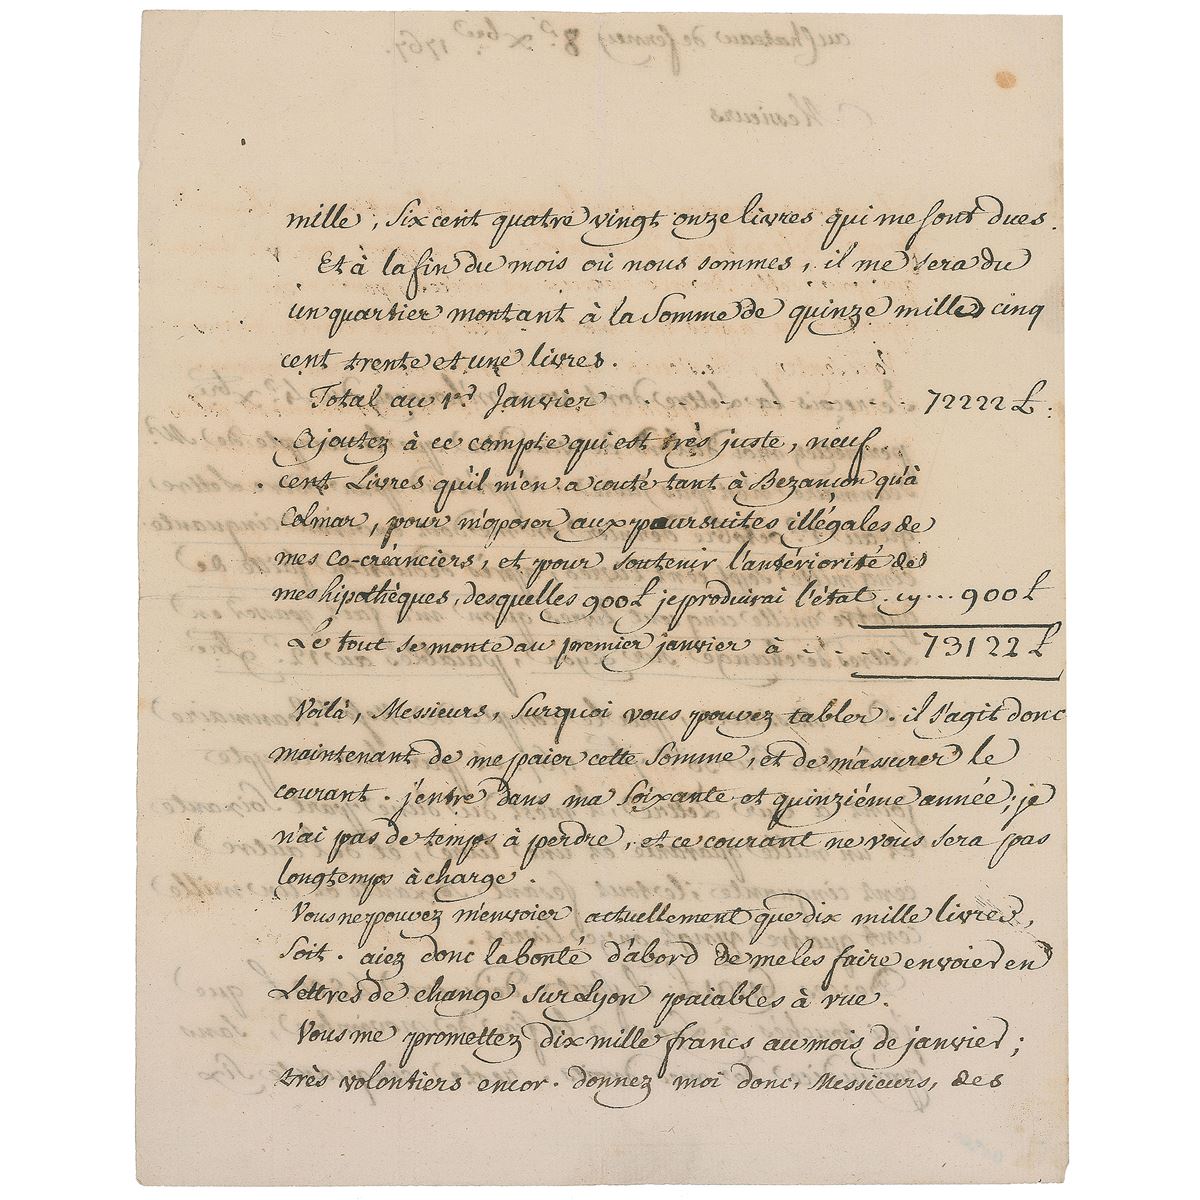 mille, Six cent quatre vingt onze livres qui me sont dues.
Et à la fin du mois où nous sommes, il me sera du
un quartier montant à la Somme de quinze mille cinq
cent trente et une livres.
Total au 1er Janvier . . . . 72222 ₶.
Ajoutez à ce compte qui est très juste, neuf
cent Livres qu'il m'en a couté tant à Bezançon qu'à
Colmar, pour m'oposer aux poursuites illégales de
mes co-créanciers, et pour soutenir l'antériorité de
mes hipothèques, desquelles 900 ₶ je produirai l'état . cy ... 900 ₶
Le tout se monte au premier janvier à . . . . 73122 ₶
Voilà, Messieurs, Surquoi vous pouvez tabler. il s'agit donc
maintenant de me paier cette Somme, et de m'assurer le
courant. j'entre dans ma Soixante et quinziéme année; je
n'ai pas de temps à perdre, et ce courant ne vous sera pas
longtemps à charge.
Vous ne pouvez m'envoier actuellement que dix mille livres,
Soit. aiez donc la bonté d'abord de me les faire envoier en
Lettres de change Sur Lyon paiables à vue.
Vous me promettez dix mille francs au mois de janvier;
très volontiers encor. donnez moi donc, Messieurs, des